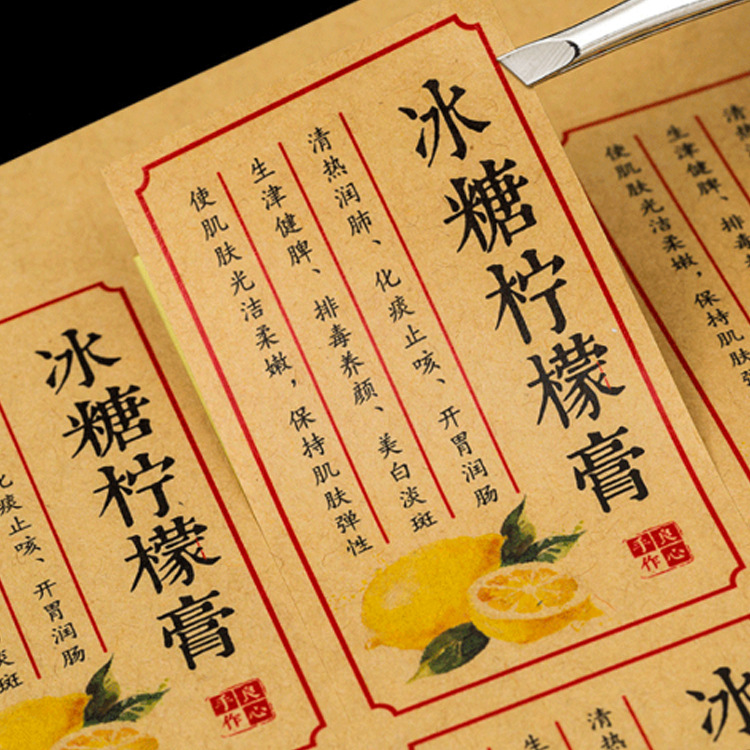 冰糖柠檬膏
清热润肺、化痰止咳、开胃润肠
生津健脾、排毒养颜、美白淡斑
使肌肤光洁柔嫩，保持肌肤弹性
良心
手作
冰糖柠檬膏
化痰止咳、开胃润肠
淡斑
良心
手作
清热
生津健脾、排毒
使肌肤光洁柔嫩，保持肌肤弹
冰糖
清热
生